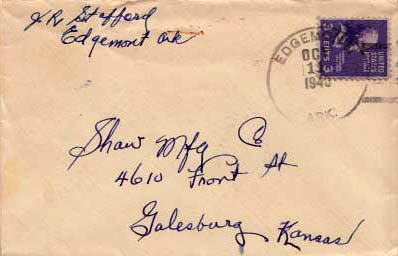 J.R. Stafford
Edgemont Ark
EDGEMO
OCT
1
1940
ARK.
UNITED
STATES
POSTAGE
3 CENTS 3
Shaw Mfg Co
4610 Front St
Galesburg Kansas